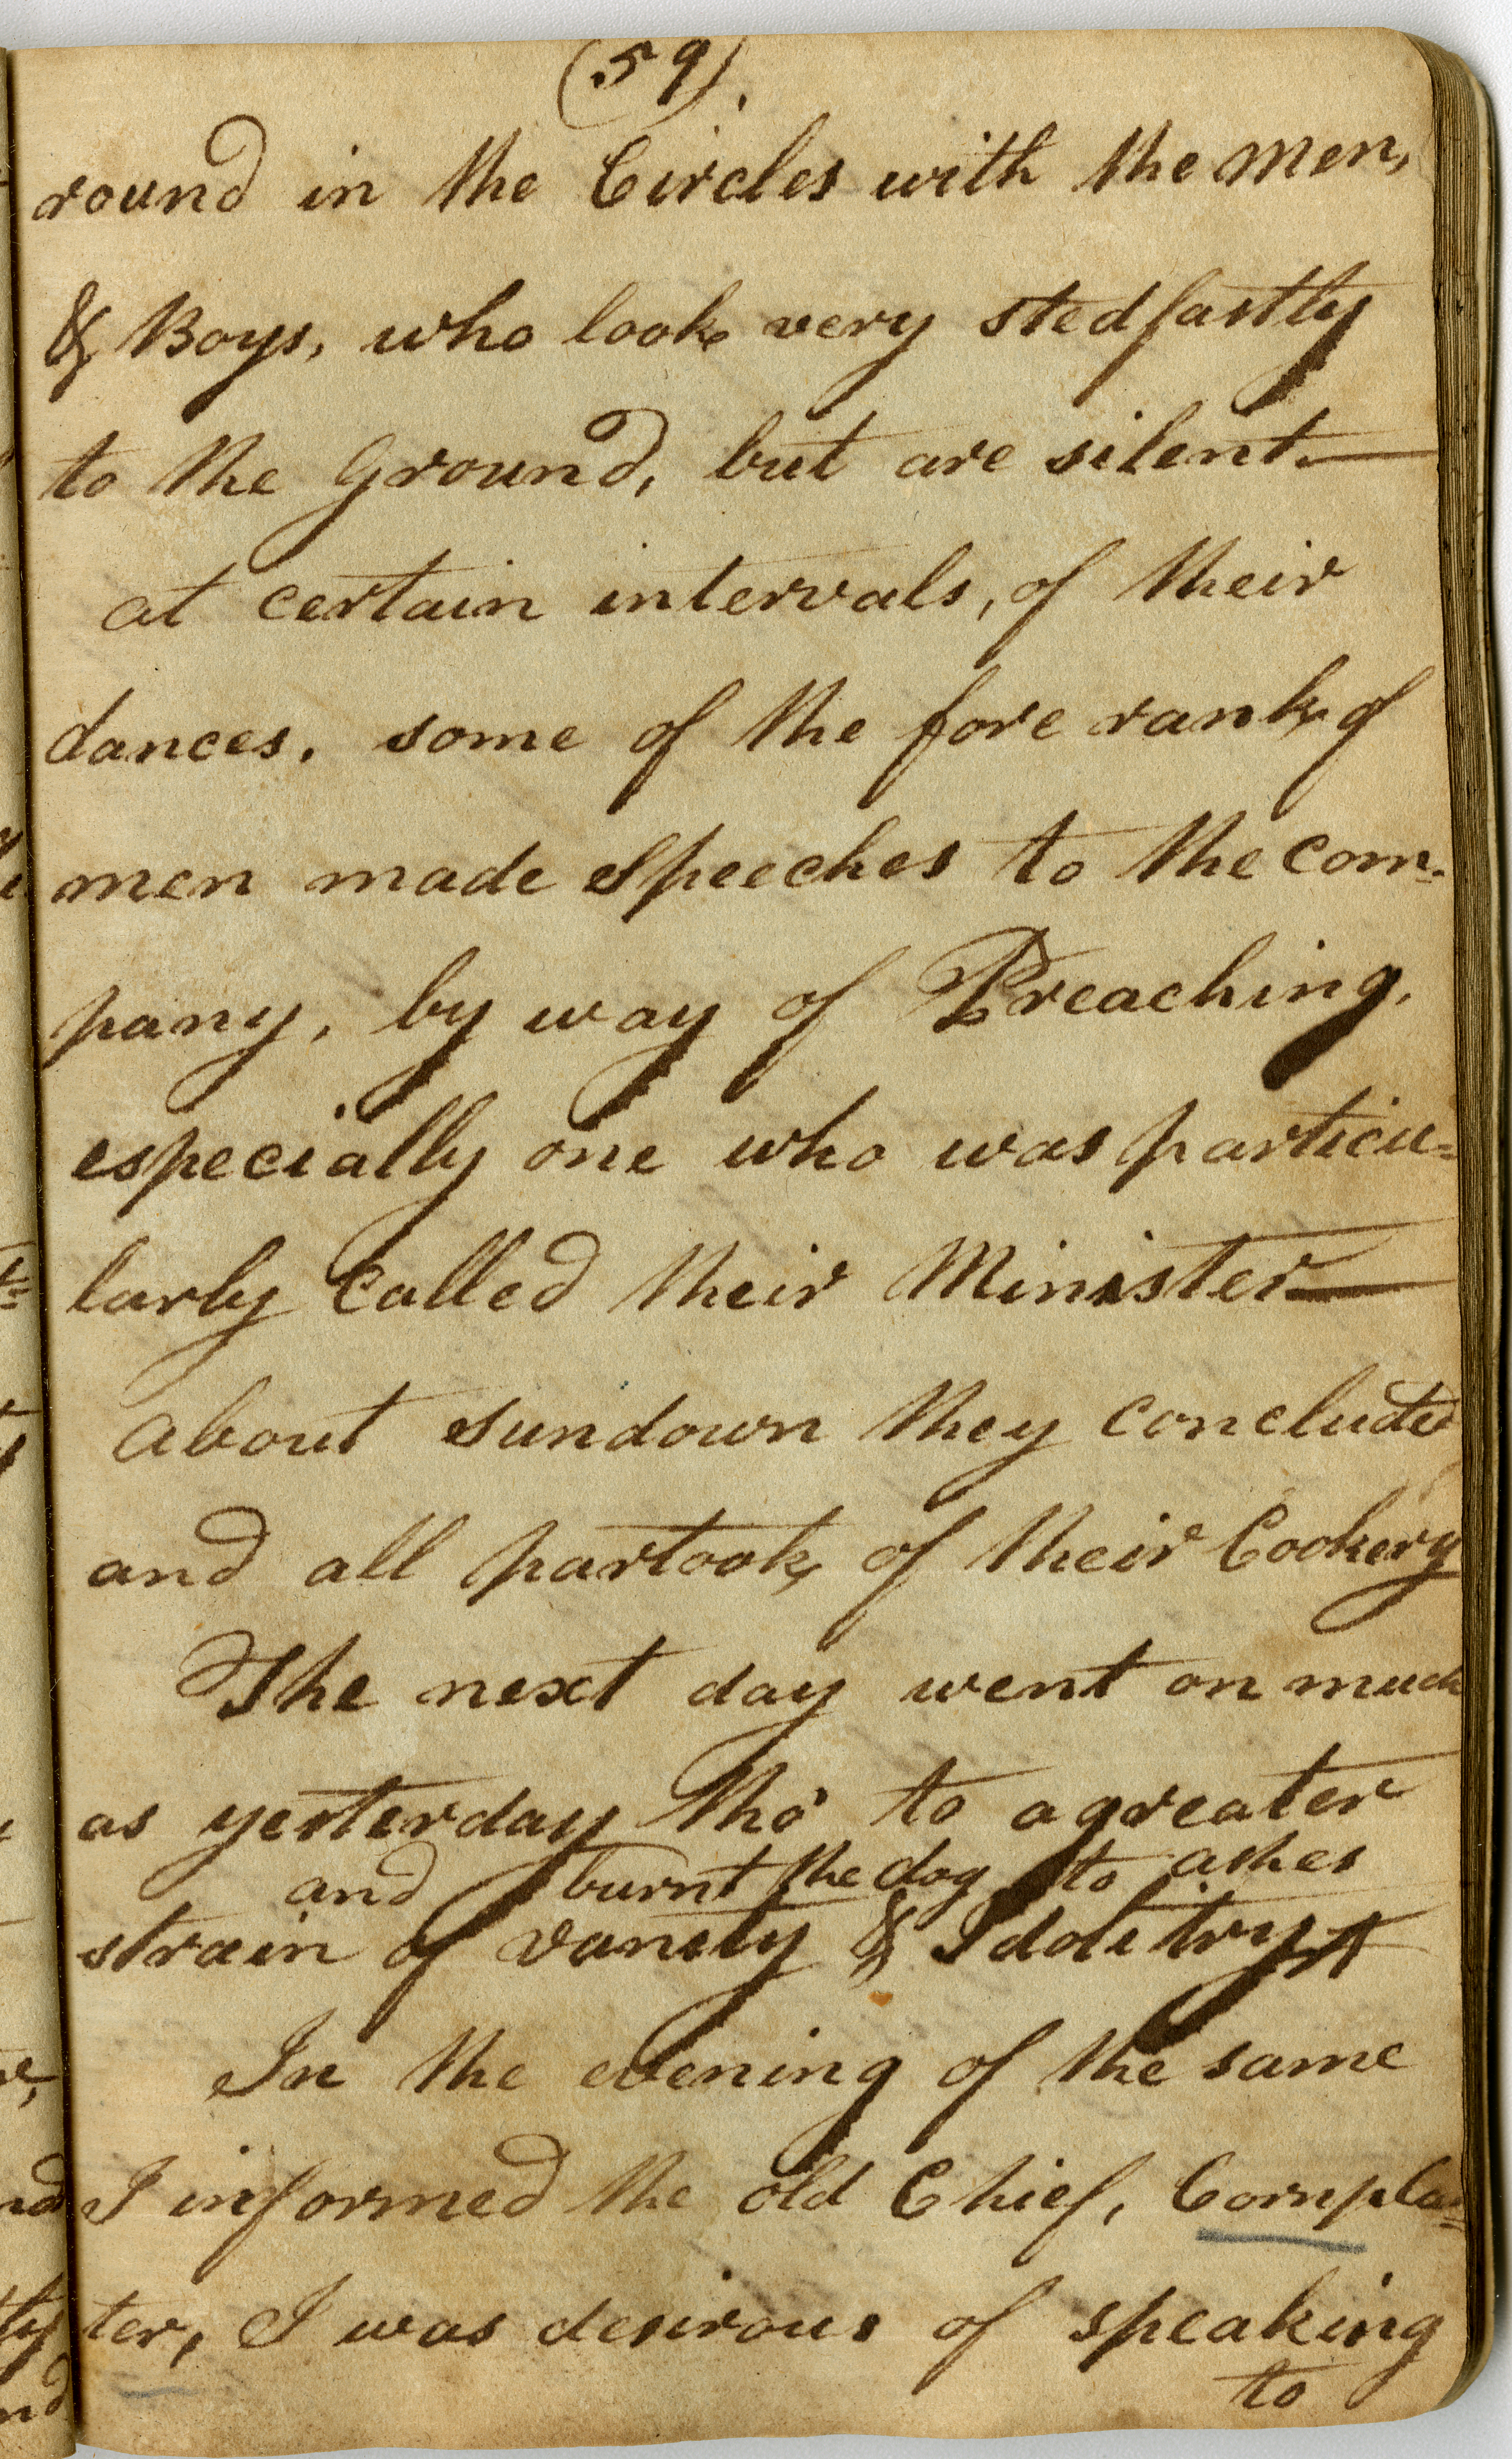 (59).
round in the Circles with the men,
& Boys, who look very stedfastly
to the Ground, but are silent.—
at certain intervals, of their
dances. some of the fore rank of
men made Speeches to the com-
pany, by way of Preaching,
especially one who was particu=
larly Called their Minister—
About sundown they concluded
and all partook of their Cookery
The next day went on much
as yesterday tho' to a greater
and burnt the dog to ashes
strain of vanity & Idolitry ^
In the evening of the same
I informed the old Chief, Cornplan=
ter, I was desirous of speaking
to